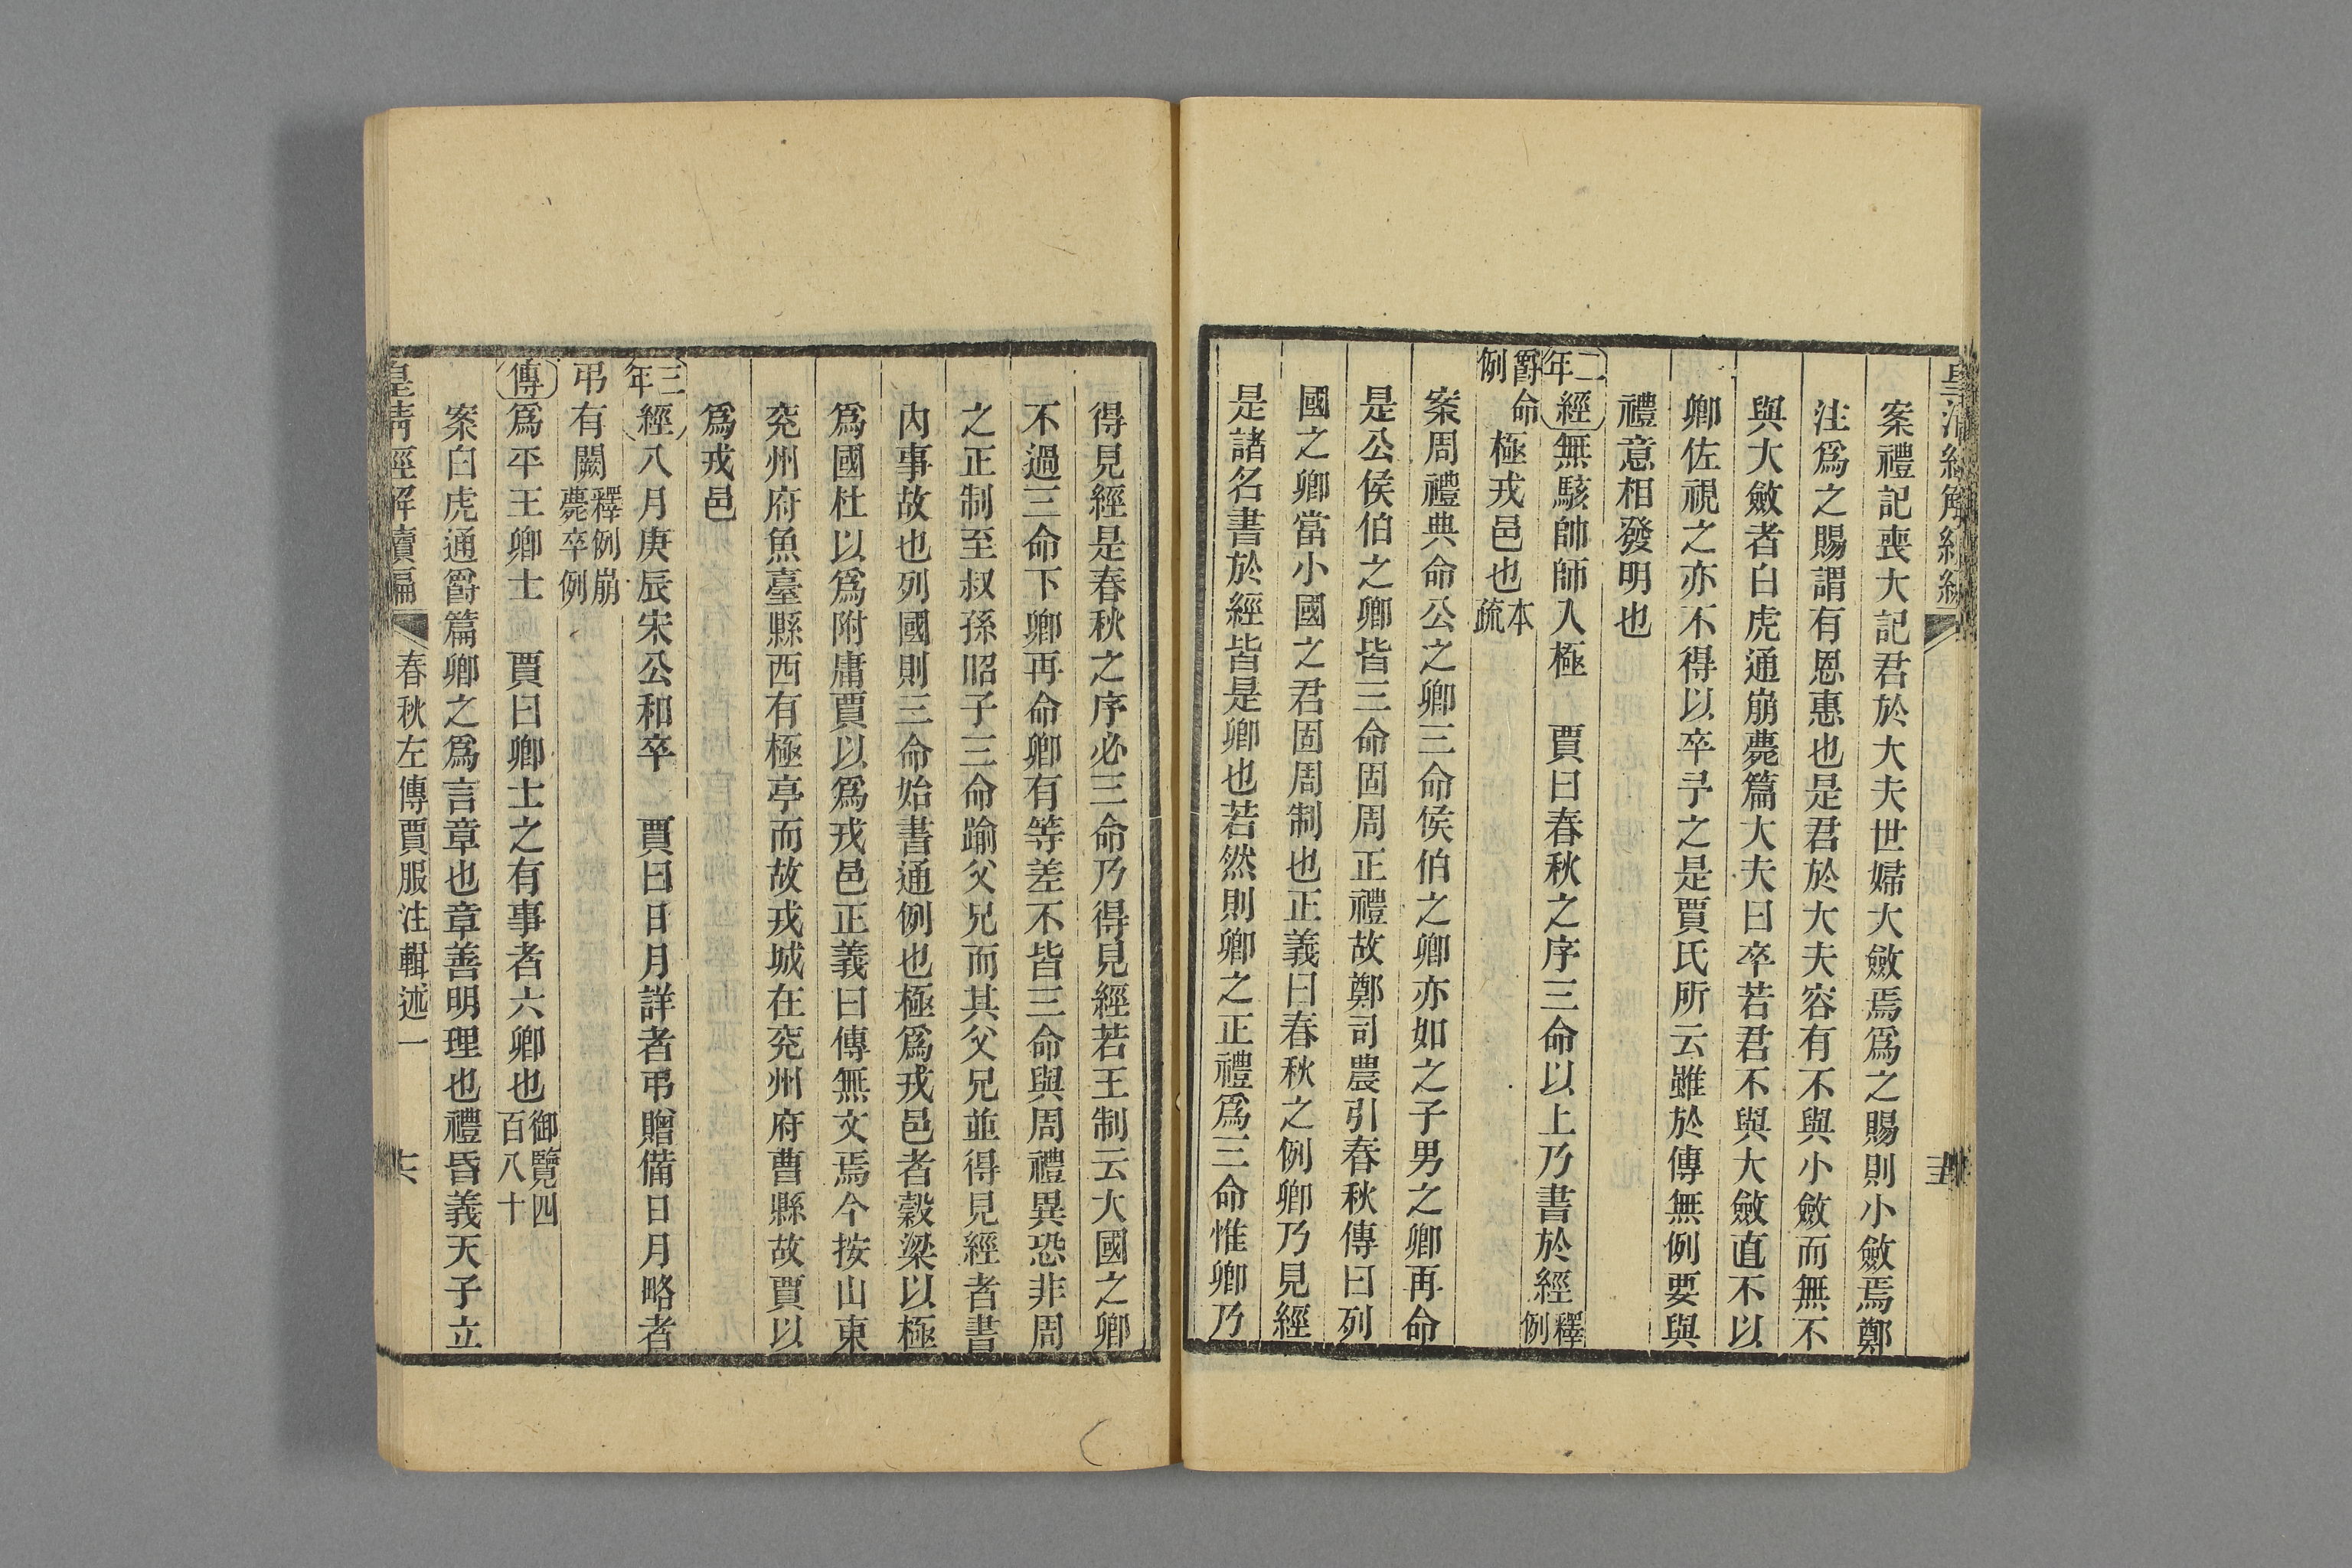 案禮記喪大記君於大夫世婦大斂焉爲之賜則小斂焉鄭
注爲之賜謂有恩惠也是君於大夫容有不與小斂而無不
與大斂者白虎通崩薨篇大夫曰卒若君不與大斂直不以
卿佐視之亦不得以卒予之是賈氏所云雖於傳無例要與
禮意相發明也
二年經無駭帥師入極　賈曰春秋之序三命以上乃書於經釋例
爵命例極戎邑也本疏
案周禮典命公之卿三命侯伯之卿亦如之子男之卿再命
是公侯伯之卿皆三命固周正禮故鄭司農引春秋傳曰列
國之卿當小國之君固周制也正義曰春秋之例卿乃見經
是諸名書於經皆是卿也若然則卿之正禮爲三命惟卿乃
得見經是春秋之序必三命乃得見經若王制云大國之卿
不過三命下卿再命卿有等差不皆三命與周禮異恐非周
之正制至叔孫昭子三命踰父兄而其父兄並得見經者書
內事故也列國則三命始書通例也極爲戎邑者穀梁以極
爲國杜以爲附庸賈以爲戎邑正義曰傳無文焉今按山東
兖州府魚臺縣西有極亭而故戎城在兖州府曹縣故賈以
爲戎邑
三年經八月庚辰宋公和卒　賈曰日月詳者弔贈備日月略者
弔有闕釋例崩薨卒例
傳爲平王卿士　賈曰卿士之有事者六卿也御覽四百八十
案白虎通爵篇卿之爲言章也章善明理也禮昏義天子立
皇清經解續編　春秋左傳賈服注輯述一　六